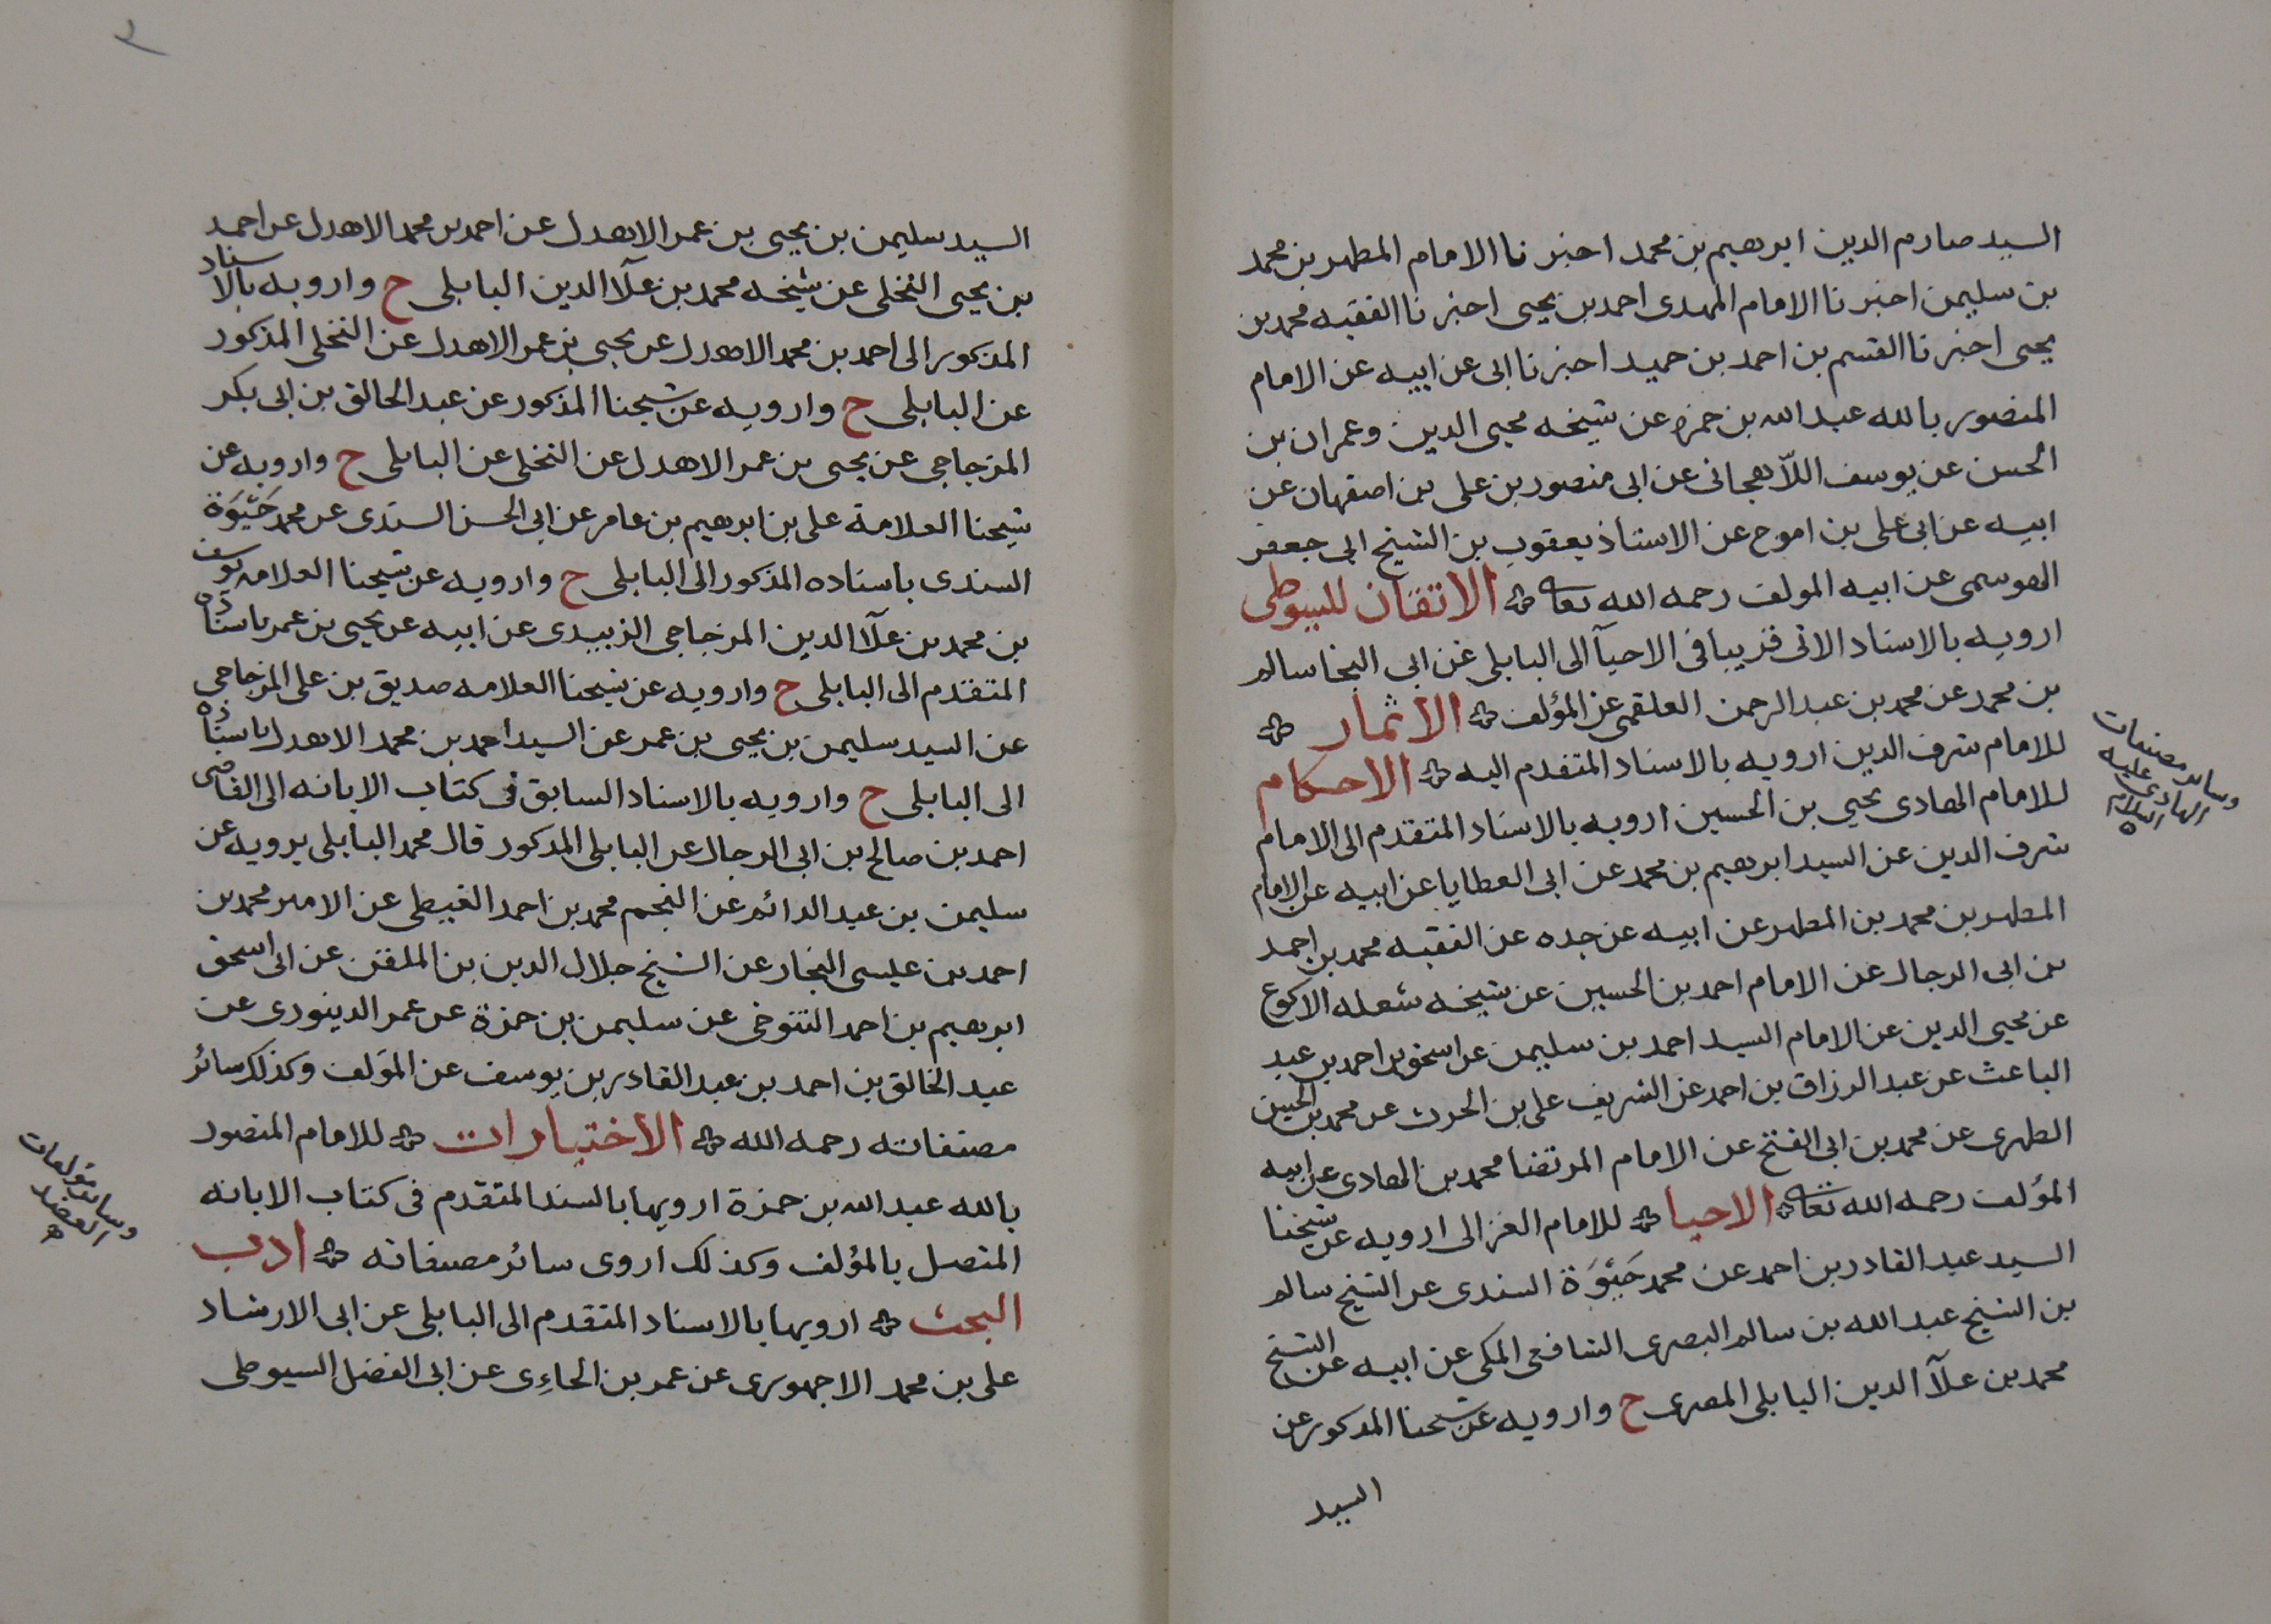 السيد صارم الدين ابرهيم بن محمد اخبرنا الامام المطهر بن محمد
بن سليمن اخبرنا الامام المهدى احمد بن يحيى اخبرنا الفقيه محمد بن
يحيى اخبرنا القسم بن احمد بن حميد اخبرنا ابى عن ابيه عن الامام
المنصور بالله عبد الله بن حمزه عن شيخه محيى الدين وعمران بن
الحسن عن يوسف اللاهجانى عن ابى منصور بن على بن اصفهان عن
ابيه عن ابى على بن اموح عن الاستاذ يعقوب بن الشيخ ابى جعفر
الهوسمى عن ابيه المولف رحمه الله تعالى الاتقان للسيوطى
ارويه بالاسناد الاتى قريبا فى الاحيآ الى البابلى عن ابى النجا سالم
بن محمد عن محمد بن عبد الرحمن العلقمى عن المؤلف الاثمار
للامام شرف الدين ارويه بالاسناد المتقدم اليه الاحكام
للامام الهادى يحيى بن الحسين ارويه بالاسناد المتقدم الى الامام
شرف الدين عن السيد ابرهيم بن محمد عن ابى العطايا عن ابيه عن الامام
المطهر بن محمد بن المطهر عن ابيه عن جده عن الفقيه محمد بن احمد
بن ابى الرجال عن الامام احمد بن الحسين عن شيخه شعله الاكوع
عن محيى الدين عن الامام السيد احمد بن سليمن عن اسحق بن احمد بن عبد
الباعث عن عبد الرزاق بن احمد عن الشريف على بن الحرث عن محمد بن الحسين
الطهرى عن محمد بن ابى الفتح عن الامام المرتضا محمد بن الهادى عن ابيه
المؤلف رحمه الله تعالى الاحيا للامام الغزالى ارويه عن شيخنا
السيد عبد القادر بن احمد عن محمد حَيٰوَة السندى عن الشيخ سالم
بن الشيخ عبد الله بن سالم البصرى الشافعى المكى عن ابيه عن الشيخ
محمد بن علآ الدين البابلى المصرى ح وارويه عن شيخنا المذكور عن
السيد
وساير مصنفات
الهادى عليه
السلام
السيد سليمن بن يحيى بن عمر الاهدل عن احمد بن محمد الاهدل عن احمد
بن يحيى النخلى عن شيخه محمد بن علآ الدين البابلى ح وارويه بالاسناد
المذكور الى احمد بن محمد الاهدل عن يحيى بن عمر الاهدل عن النخلى المذكور
عن البابلى ح وارويه عن شيخنا المذكور عن عبد الخالق بن ابى بكر
المزجاجى عن يحيى بن عمر الاهدل عن النخلى عن البابلى ح وارويه عن
شيخنا العلامة على بن ابرهيم بن عامر عن ابى الحسن السندى عن محمد حَيٰوَة
السندى باسناده المذكور الى البابلى ح وارويه عن شيخنا العلامه يوسف
بن محمد بن علآ الدين المزجاجى الزبيدى عن ابيه عن يحيى بن عمر باسناده
المتقدم الى البابلى ح وارويه عن شيخنا العلامه صديق بن على المزجاجى
عن السيد سليمن بن يحيى بن عمر عن السيد احمد بن محمد الاهدل باسناده
الى البابلى ح وارويه بالاسناد السابق فى كتاب الابانه الى القاضى
احمد بن صالح بن ابى الرجال عن البابلى المذكور قال محمد البابلى يرويه عن
سليمن بن عبد الدائم عن النجم محمد بن احمد الغيطى عن الامير محمد بن
احمد بن عليسى النجار عن الشيخ جلال الدين بن الملقن عن ابى اسحق
ابرهيم بن احمد التنوخى عن سليمن بن حمزة عن عمر الدينورى عن
عبد الخالق بن احمد بن عبد القادر بن يوسف عن المؤلف وكذلك سائر
مصنفاته رحمه الله الاختيارات للامام المنصور
بالله عبد الله بن حمزة ارويها بالسند المتقدم فى كتاب الابانه
المتصل بالمؤلف وكذلك اروى سائر مصنفاته ادب
البحث ارويها بالاسناد المتقدم الى البابلى عن ابى الارشاد
على بن محمد الاجهورى عن عمر بن الجاءِى عن ابى الفضل السيوطى
وساير مؤلفات
العضد